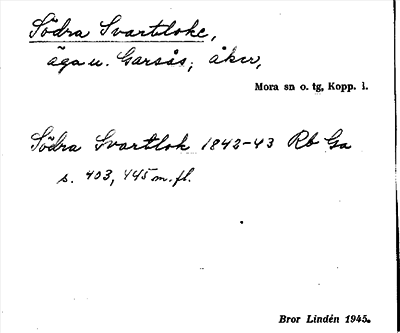 Södra Svartloke,
äga u. Garsås; åker,
Mora sn o. tg, Kopp. l.
Södra Svartlok 1842-43 Rb Ga
s. 403, 445 m. fl.
Bror Lindén 1945.